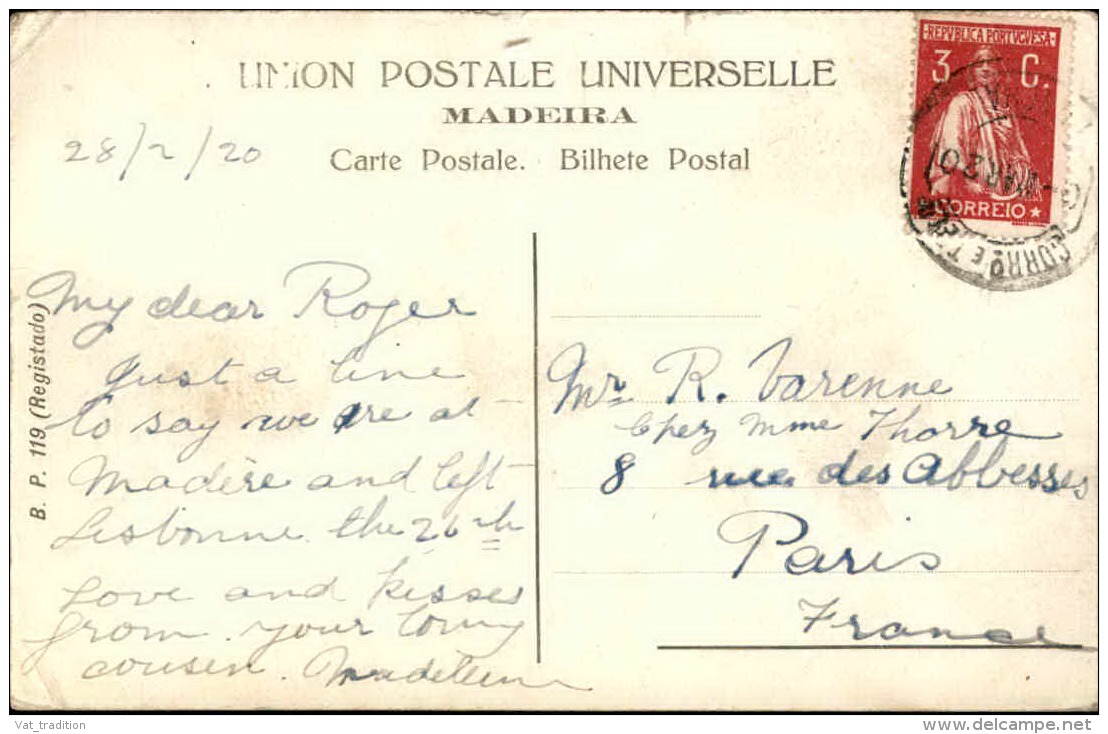 UNION POSTALE UNIVERSELLE
MADEIRA
Carte Postale. Bilhete Postal
28/2/20
REPVBLICA PORTVGVESA
3 C.
CORREIO
MAR 20
CORRº E T
B. P. 119 (Registado)
My dear Roger
Just a line
to say we are at
Madère and left
Lisbonne the 26th
Love and kisses
from your loving
cousin. Madeleine
Mr R. Varenne
Chez Mme Thorre
8 rue des Abbesses
Paris
France
Vat_tradition
delcampe.net